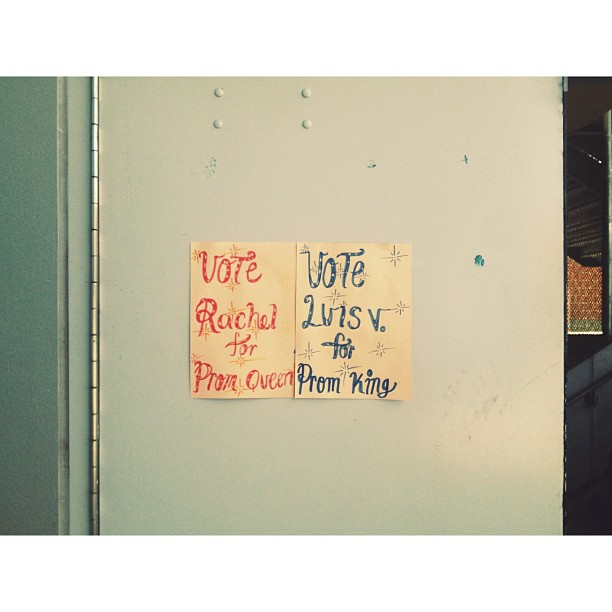 VOTE
Rachel
for
Prom Queen
VOTE
Luis v.
for
Prom King